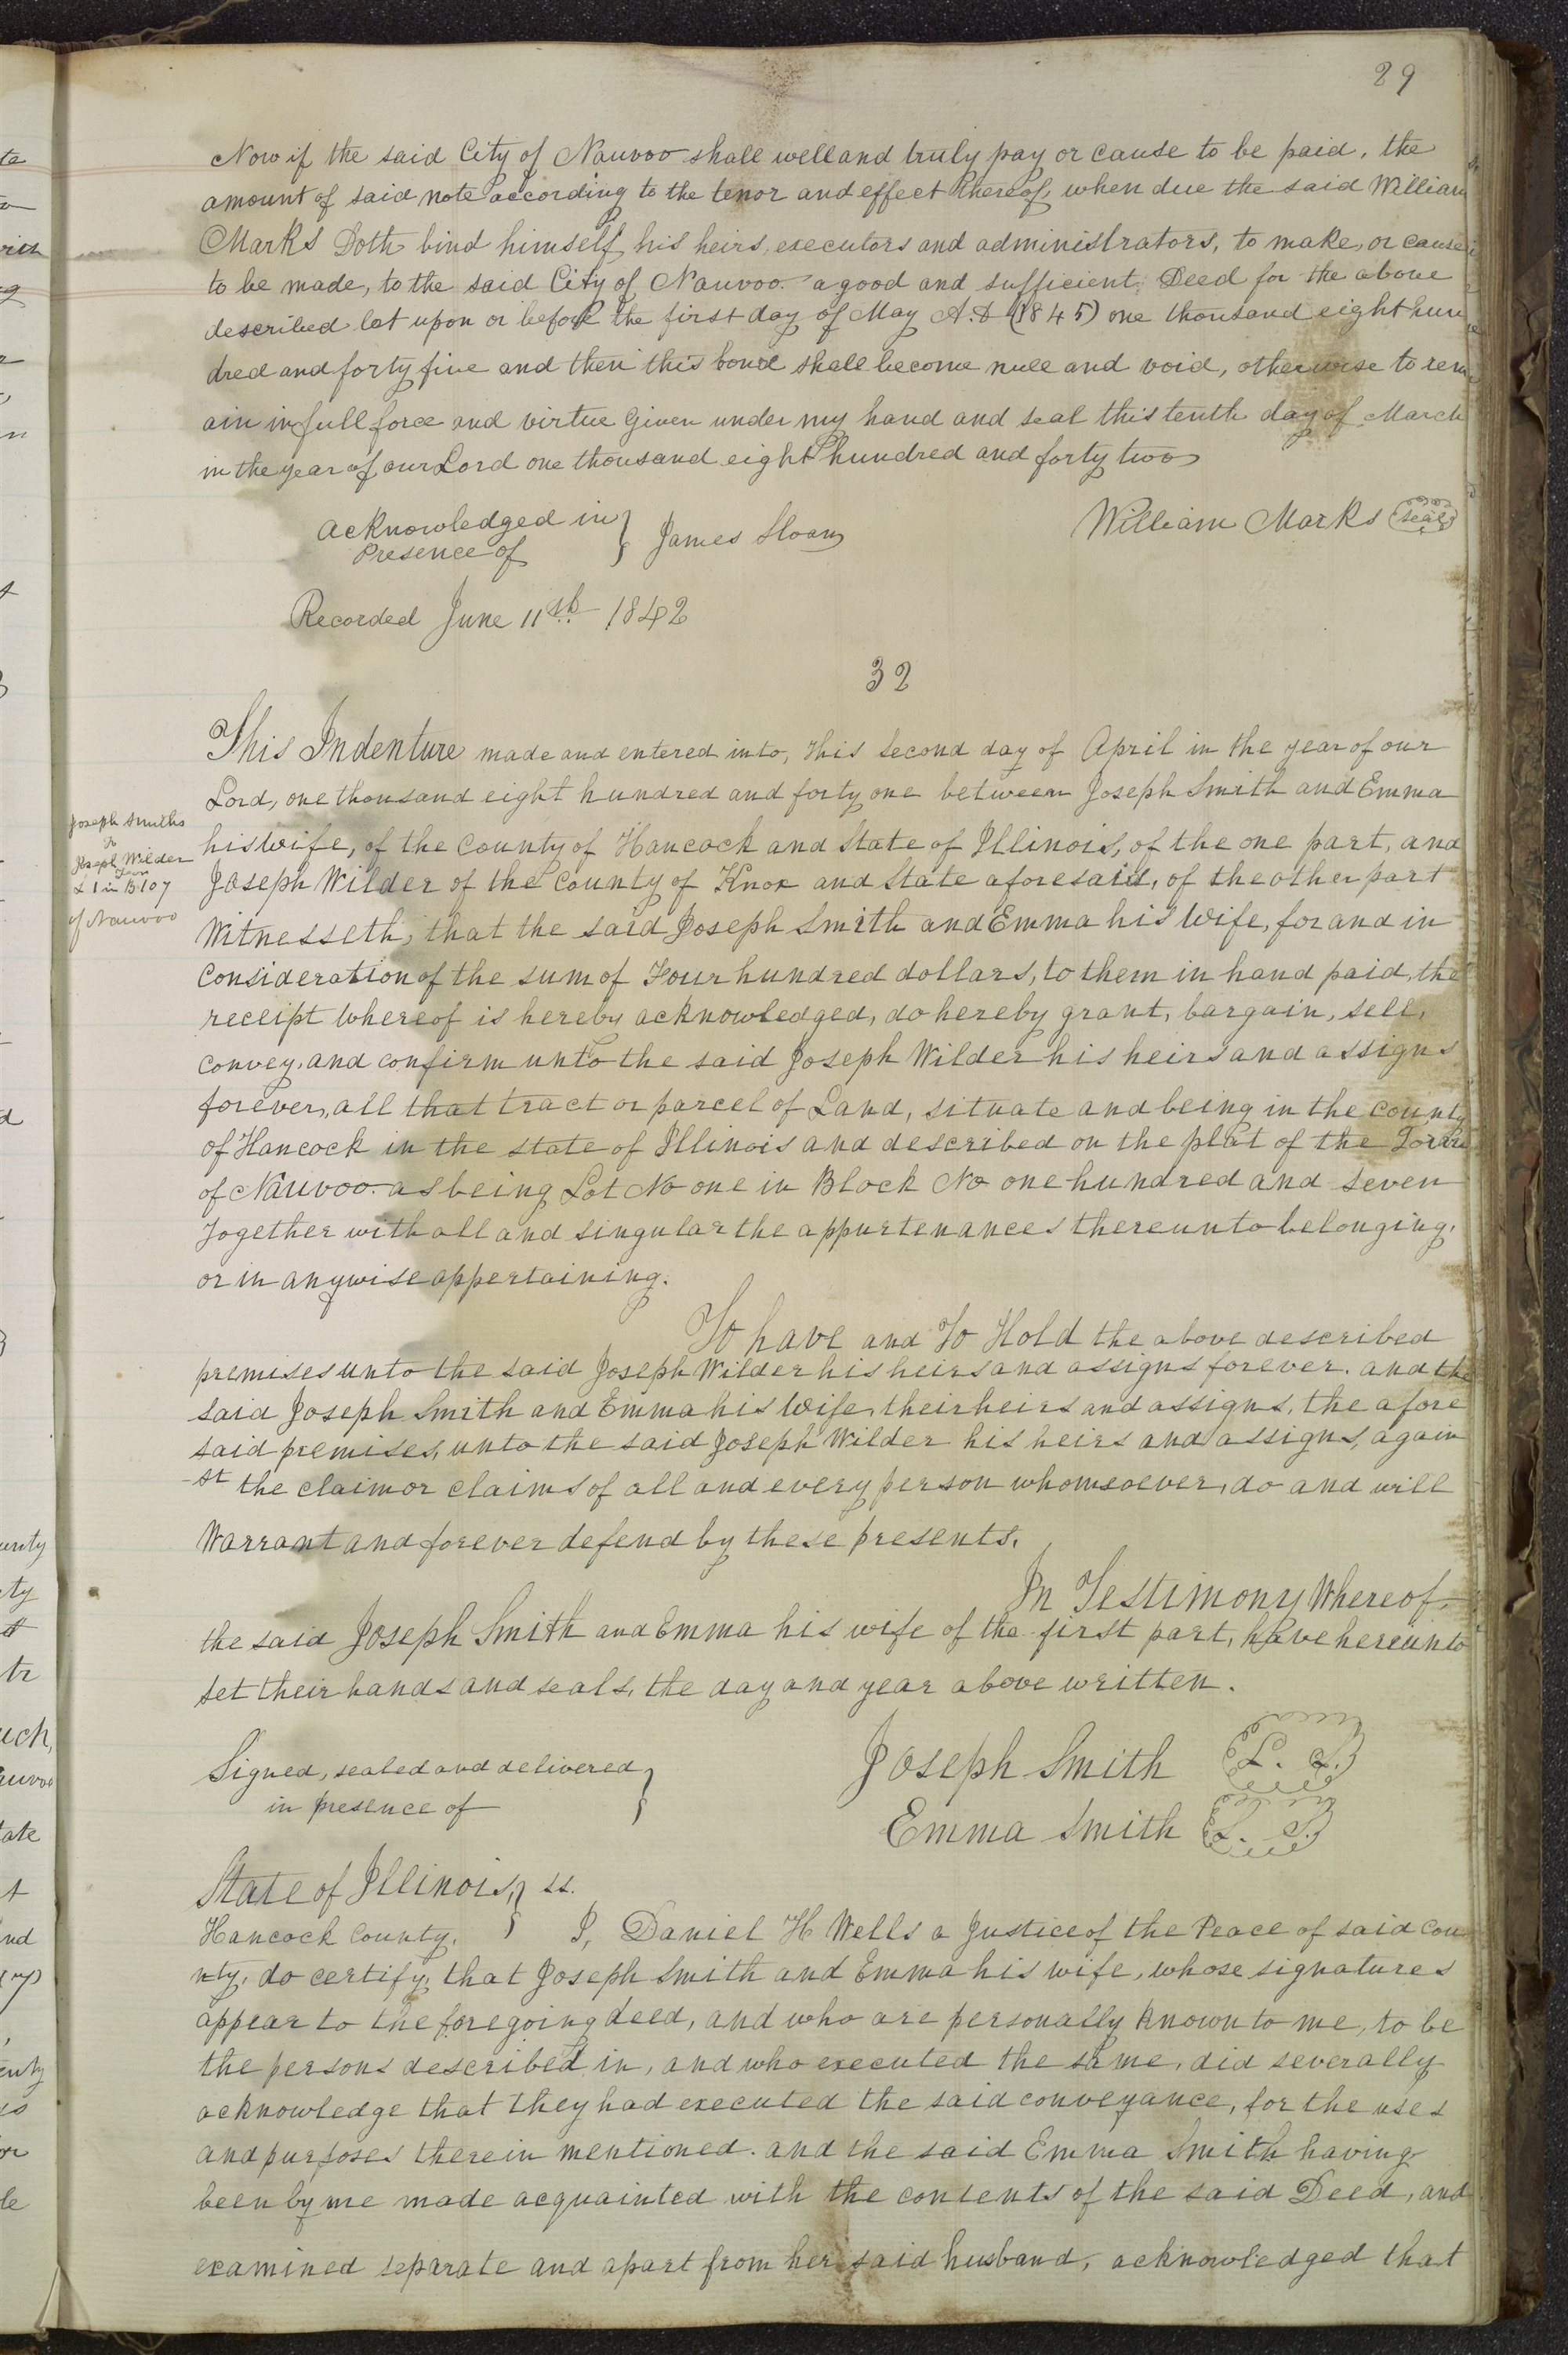 89
Now if the said City of Nauvoo shall well and truly pay or cause to be paid, the
amount of said note according to the tenor and effect thereof, when due the said William
Marks Doth bind himself, his heirs, executors and administrators, to make, or cause
to be made, to the said City of Nauvoo. a good and sufficient Deed for the above
described lot upon or before the first day of May A.D (1845) one thousand eight hun
dred and forty five and then this bond shall become null and void, otherwise to rem
ain in full force and virtue Given under my hand and seal this tenth day of March
in the year of our Lord one thousand eight hundred and forty two
Acknowledged in } James Sloan William Marks (seal)
Presence of
Recorded June 11th 1842
32
This Indenture made and entered into, this second day of April in the year of our
Lord, one thousand eight hundred and forty one between Joseph Smith and Emma
his wife, of the County of Hancock and State of Illinois, of the one part, and
Joseph Wilder of the County of Knox and State aforesaid, of the other part
Joseph Smiths
to
Joseph Wilder
L 1 in B 107
of Nauvoo
Witnesseth, that the said Joseph Smith and Emma his Wife, for and in
Consideration of the sum of Four hundred dollars, to them in hand paid, the
receipt Whereof is hereby acknowledged, do hereby grant, bargain, sell,
convey, and confirm unto the said Joseph Wilder his heirs and assigns
forever, all that tract or parcel of Land, situate and being in the county
of Hancock in the state of Illinois and described on the plat of the Town
of Nauvoo. as being Lot No one in Block No one hundred and seven
Together with all and singular the appurtenances thereunto belonging,
or in anywise appertaining.
To have and To Hold the above described
premises unto the said Joseph Wilder his heirs and assigns forever. and the
said Joseph Smith and Emma his Wife, their heirs and assigns, the afore
said premises, unto the said Joseph Wilder his heirs and assigns, again
st the claim or claims of all and every person whomsoever, do and will
Warrant and forever defend by these presents.
In Testimony Whereof,
the said Joseph Smith and Emma his wife of the first part, have hereunto
set their hands and seals, the day and year above written.
Signed, sealed and delivered } Joseph Smith (L. S.)
in presence of Emma Smith (L. S.)
State of Illinois, } ss.
Hancock County. I, Daniel H Wells a Justice of the Peace of said Cou
nty, do certify, that Joseph Smith and Emma his wife, whose signatures
appear to the foregoing deed, and who are personally known to me, to be
the persons described in, and who executed the same, did severally
acknowledge that they had executed the said conveyance, for the uses
and purposes therein mentioned. and the said Emma Smith having
been by me made acquainted with the contents of the said Deed, and
examined separate and apart from her said husband, acknowledged that